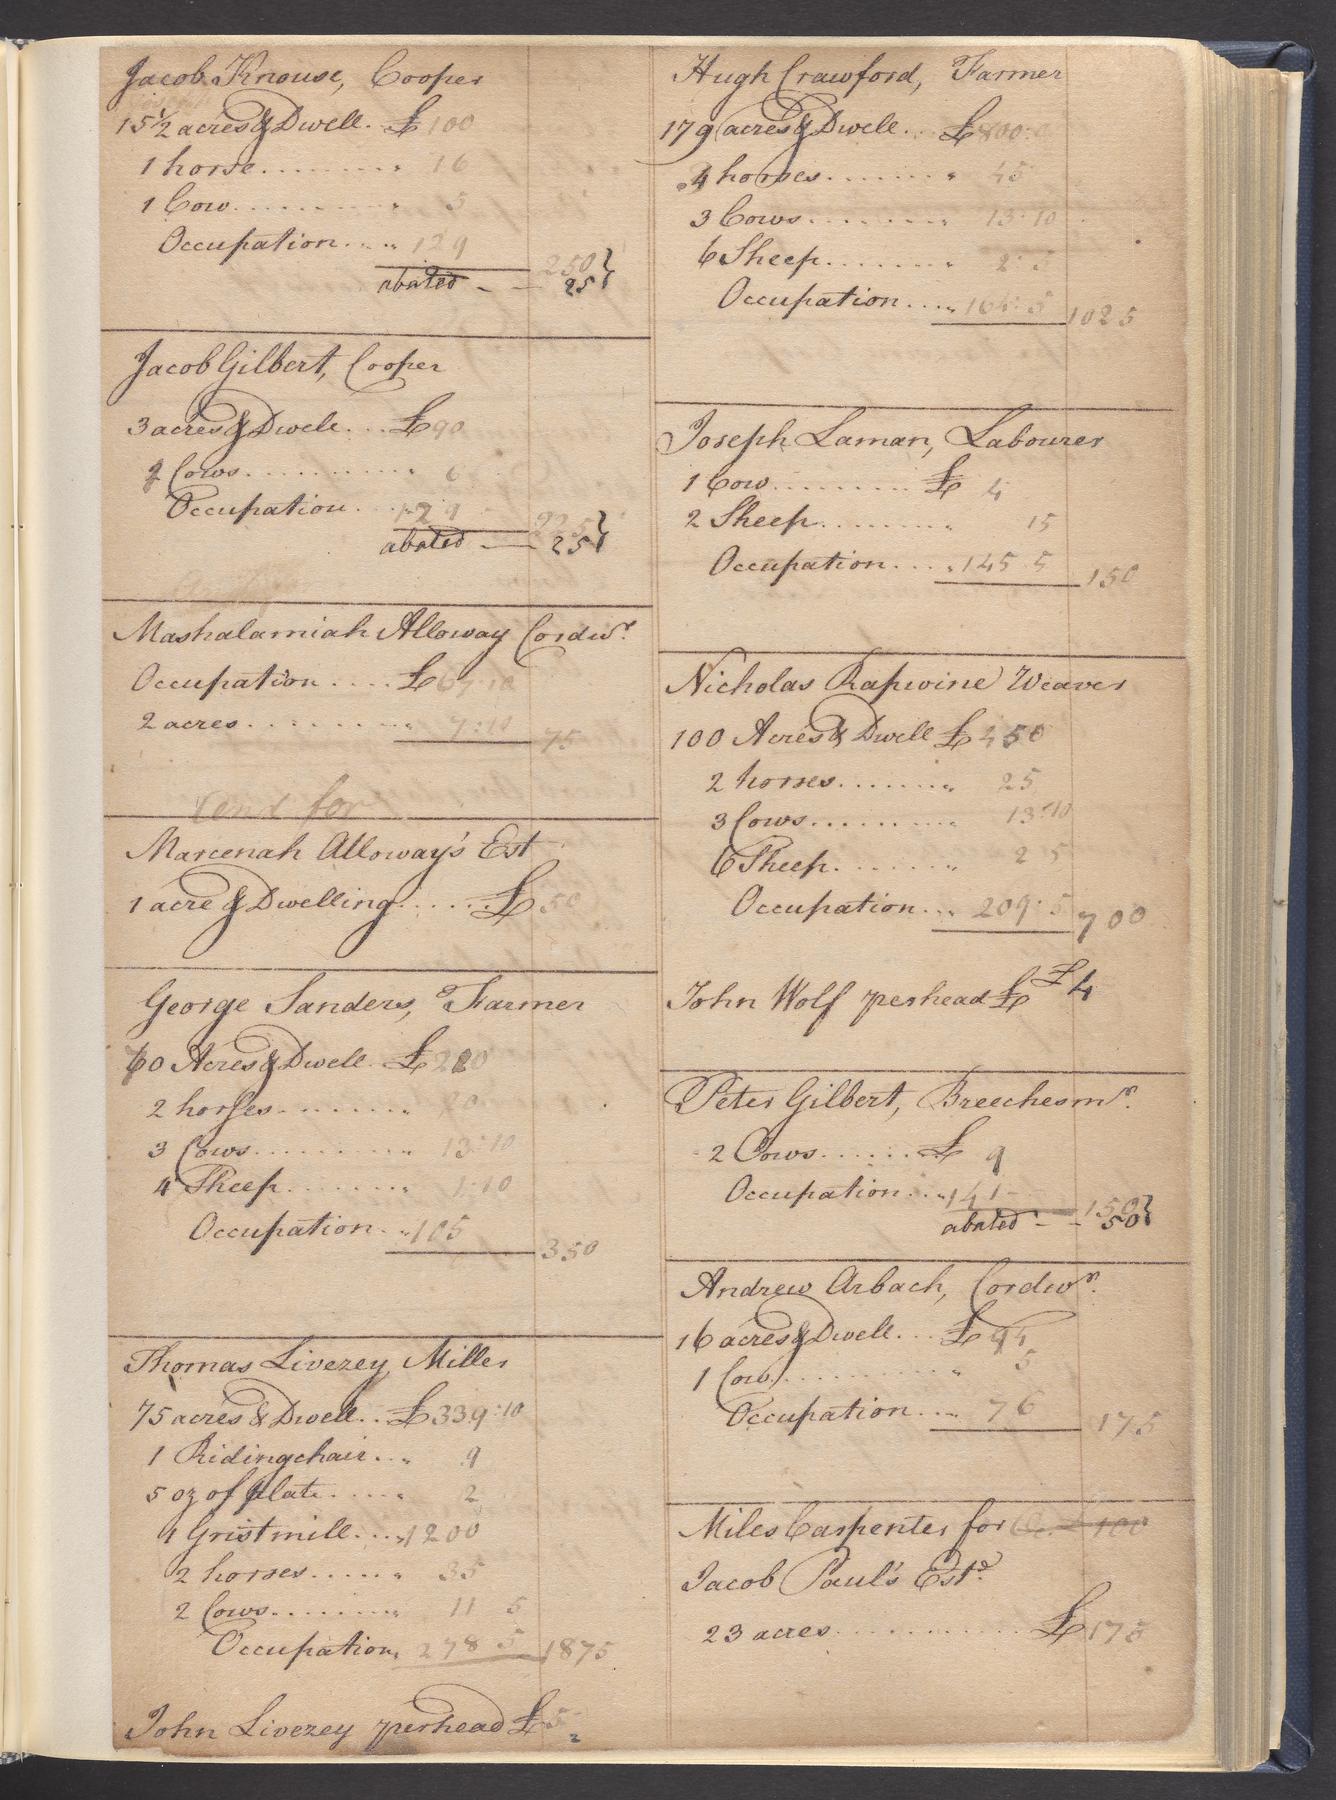 Jacob Knouse, Cooper
15 1/2 acres & Dwell. £ 100
1 horse........ " 16
1 Cow.......... " 5
Occupation.... " 129
250
abated - - 25
Jacob Gilbert, Cooper
3 acres & Dwell... £ 90
2 Cows.......... " 6
Occupation.... " 129
225
abated — 25
Mashalamiah Alloway Cordwr.
Occupation.... £ 67.10
2 acres........ " 7:10
75
for
Marcenah Alloway's Est
1 acre & Dwelling..... £ 50
George Sanders, Farmer
60 Acres & Dwell. £ 210
2 horses........ " 20
3 Cows.......... " 13:10
4 Sheep....... " 1:10
Occupation.. " 105
350
Thomas Livezey, Miller
75 acres & Dwell.. £ 339:10
1 Ridingchair.. " 9
5 oz of plate..... " 2
1 Gristmill... " 1200
2 horses..... " 35
2 Cows........ " 11 5
Occupation " 278 5 1875
John Livezey perhead £ 5
Hugh Crawford, Farmer
179 acres & Dwell... £ 800:0
4 horses....... " 45
3 Cows......... " 13:10
6 Sheep....... " 2:5
Occupation.... " 164:5 1025
Joseph Laman, Labourer
1 Cow......... £ 4
2 Sheep........ " 15
Occupation.... " 145 5 150
Nicholas Rapwine Weaver
100 Acres & Dwell £ 450
2 horses....... " 25
3 Cows......... " 13:10
6 Sheep....... " 2 5
Occupation... " 209:5 700
John Wolf perhead £ £ 4
Peter Gilbert, Breechesmr.
2 Cows...... £ 9
Occupation... " 141
150
abated - - 50
Andrew Arbach, Cordwr.
16 acres & Dwell... £ 94
1 Cow.......... " 5
Occupation... " 76 175
Miles Carpenter for 100
Jacob Paul's Este.
23 acres............ £ 175